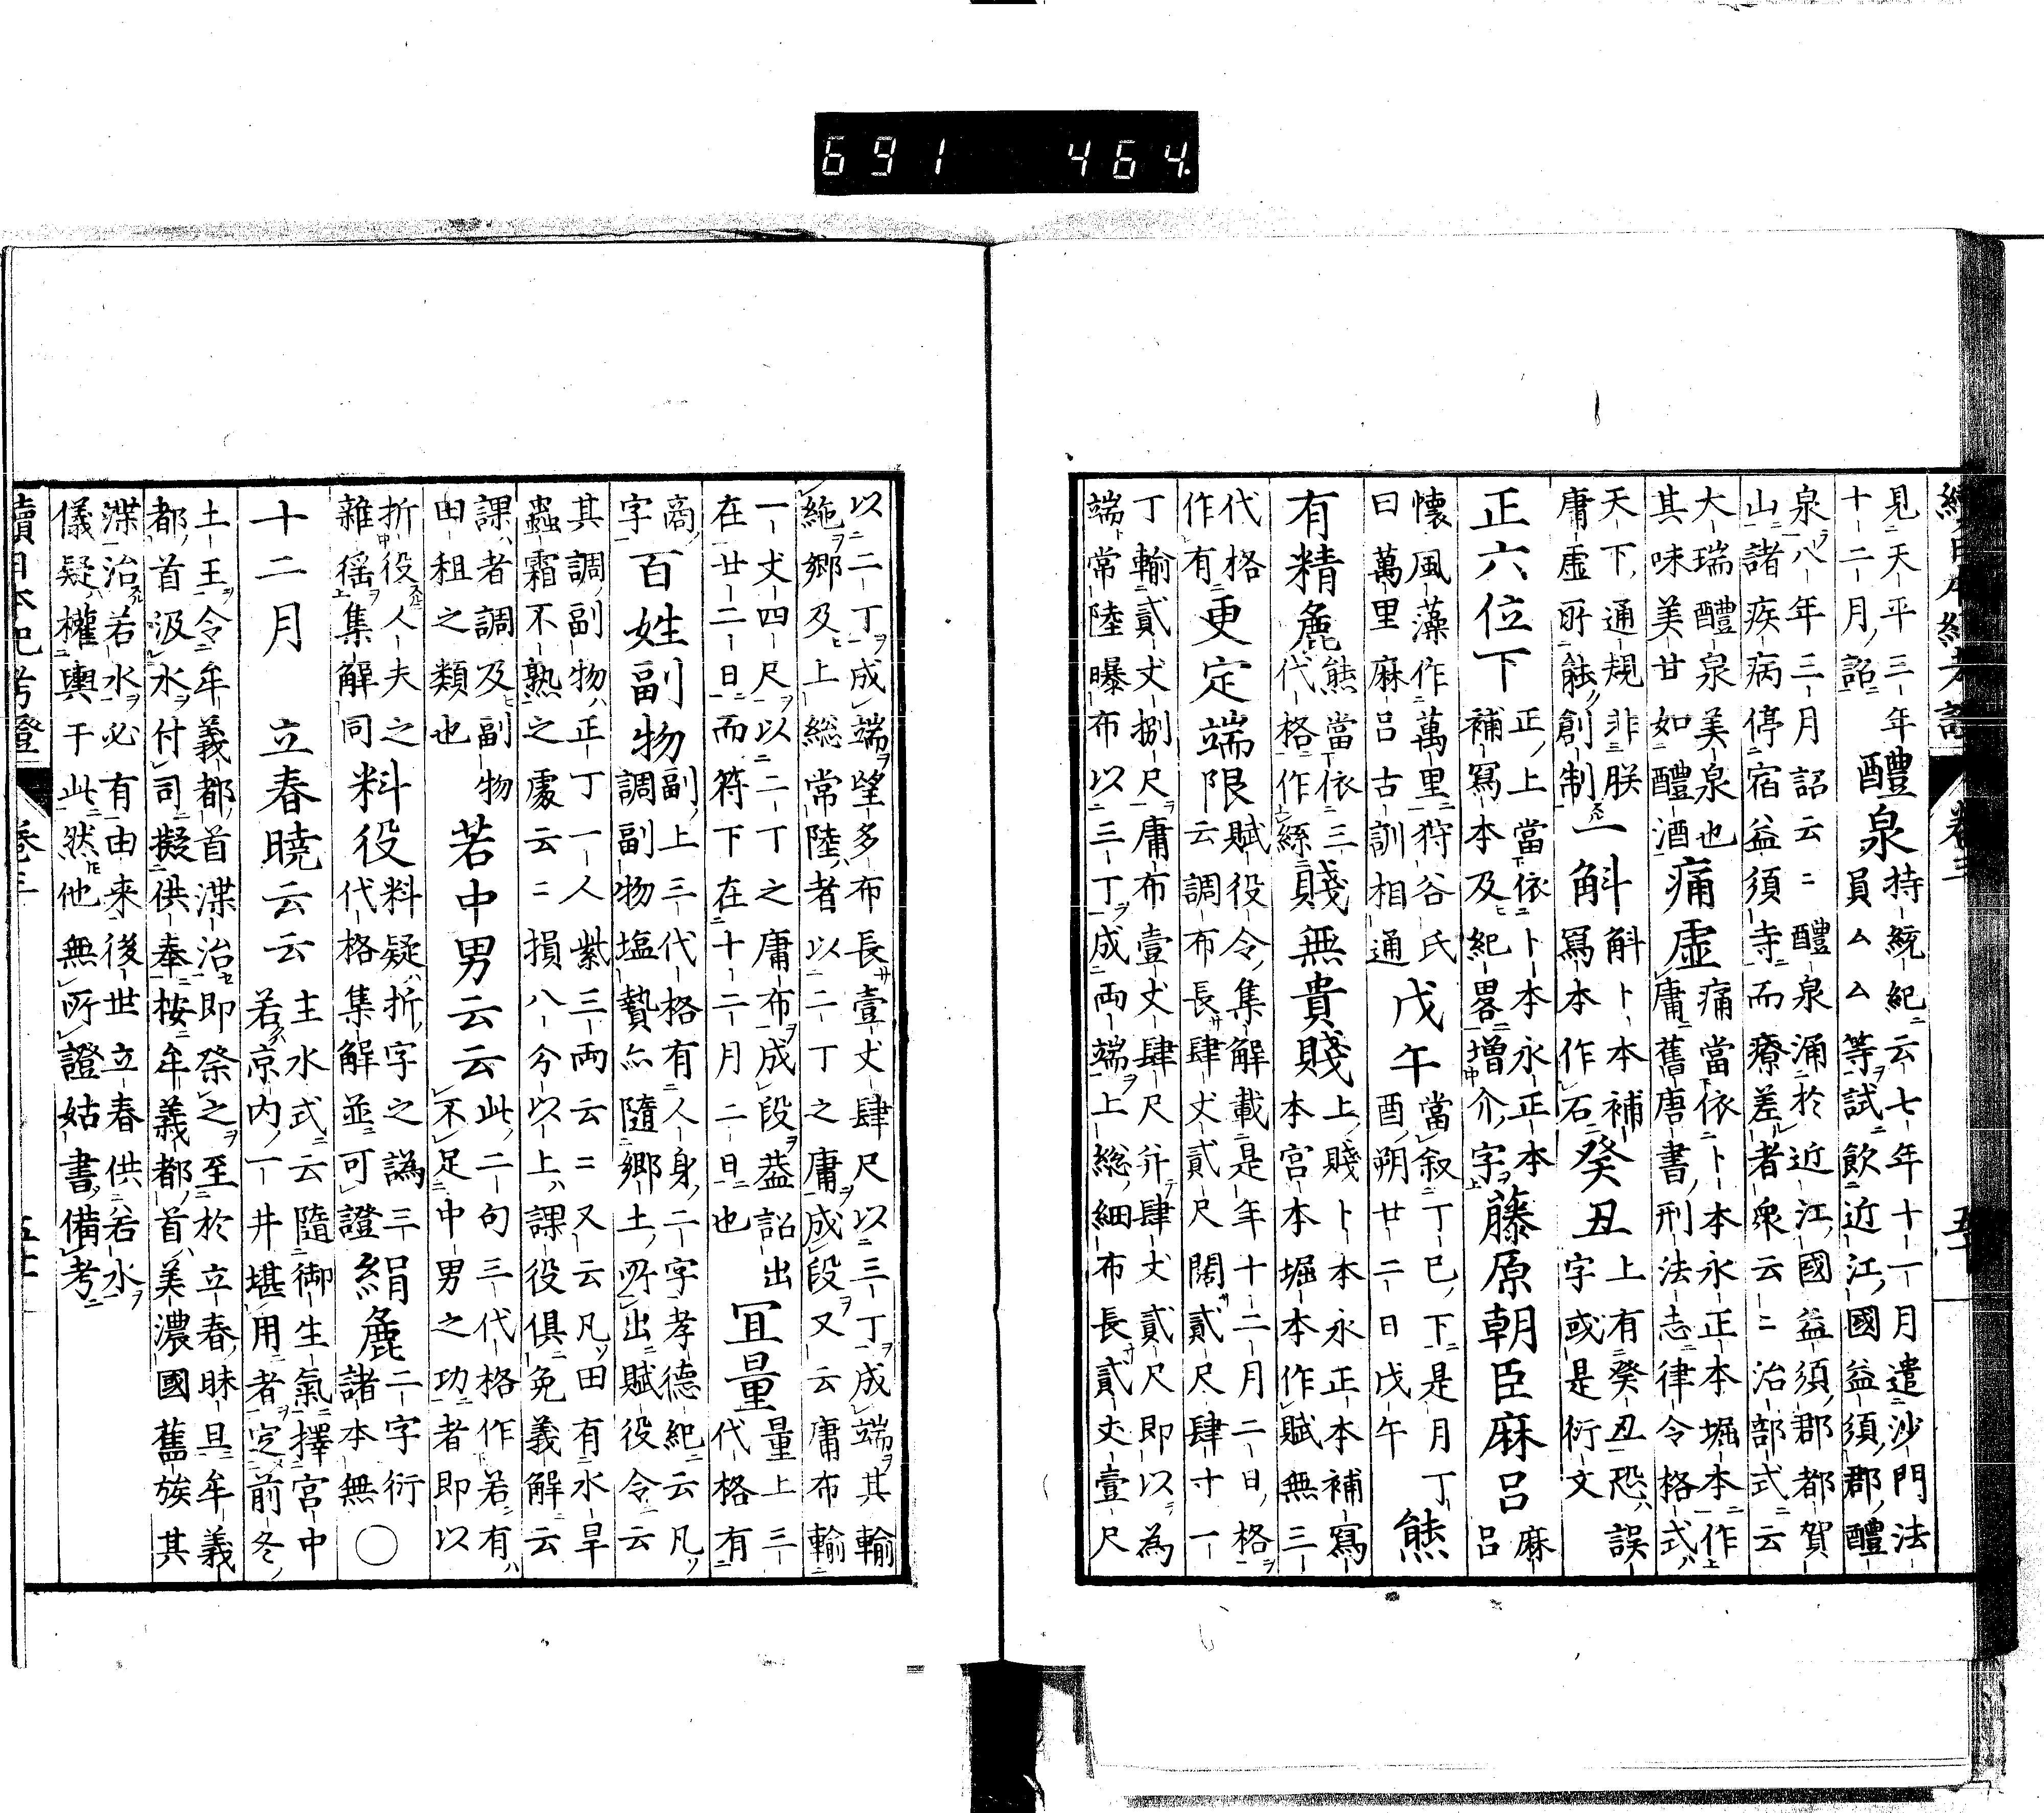 續日本紀考證 卷三
見天平三年
十二月詔
醴泉
持統紀云七年十一月遣沙門法
員ムム等試飲近江國益須郡醴
泉八年三月詔云〻醴泉涌於近江國益須郡都賀
山諸疾病停宿益須寺而療差者衆云〻治部式云
大瑞醴泉美泉也
其味美甘如醴酒
痛虚
痛當依卜本永正本堀本作
庸舊唐書刑法志律令格式
天下通規非朕
庸虚所能創制
一斛
斛卜本補
寫本作石
癸丑
上有癸丑恐誤
字或是衍文
正六位下
正上當依卜本永正本
補寫本及紀畧増介字
藤原朝臣麻呂
麻
呂
懷風藻作萬里狩谷氏
曰萬里麻呂古訓相通
戊午
當叙丁巳下是月丁
酉朔廿二日戊午
熊
有精麁
熊當依三
代格作絲
賤無貴賤
上賤卜本永正本補寫
本宮本堀本作賦無三
代格
作有
更定端限
賦役令集解載是年十二月二日格
云調布長肆丈貳尺闊貳尺肆寸一
丁輸貳丈捌尺庸布壹丈肆尺并肆丈貳尺即以為
端常陸曝布以三丁成両端上総細布長貳丈壹尺
以二丁成端望多布長壹丈肆尺以三丁成端其輸
絁郷及上総常陸者以二丁之庸成段又云庸布輸
一丈四尺以二丁之庸布成段葢詔出
在廿二日而符下在十二月二日也
冝量
量上三
代格有
商
字
百姓副物
副上三代格有人身二字孝德紀云凡
調副物塩贄亦隨郷土所出賦役令云
其調副物正丁一人紫三両云〻又云凡田有水旱
蟲霜不熟之處云〻損八分以上課役俱免義解云
課者調及副物
田租之類也
若中男云云
此二句三代格作若有
不足中男之功者即以
折役人夫之
雜徭集解同
料役
料疑折字之譌三
代格集解並可證
絹麁
二字衍
諸本無
○
十二月
立春暁云云
主水式云隨御生氣擇宮中
若京内一井堪用者定前冬
土王令牟義都首渫治即祭之至於立春昧旦牟義
都首汲水付司擬供奉按牟義都首美濃國舊族其
渫治若水必有由来後世立春供若水
儀疑權輿于此然他無所證姑書備考
續日本紀考證 卷三